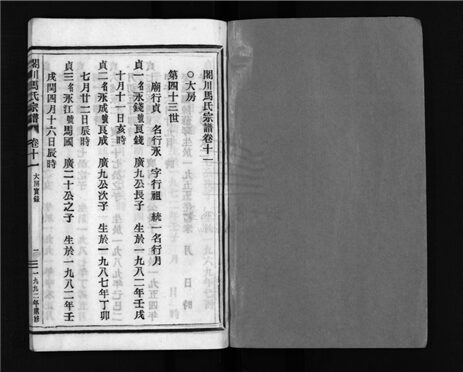 閣川馬氏宗譜卷十二
○大房
第四十三世
廟行貞 名行永 字行祖 統一名行月
貞一名永錢號良錢 廣九公長子 生於一九八二年壬戌
十月十一日亥時
貞二名永成號良成 廣九公次子 生於一九八七年丁卯
七月廿二日辰時
貞三名永江號馬國 廣二十公之子 生於一九八二年壬
戌閏四月十六日辰時
閣川馬氏宗譜 卷十一 大房實錄 一九九二年重修